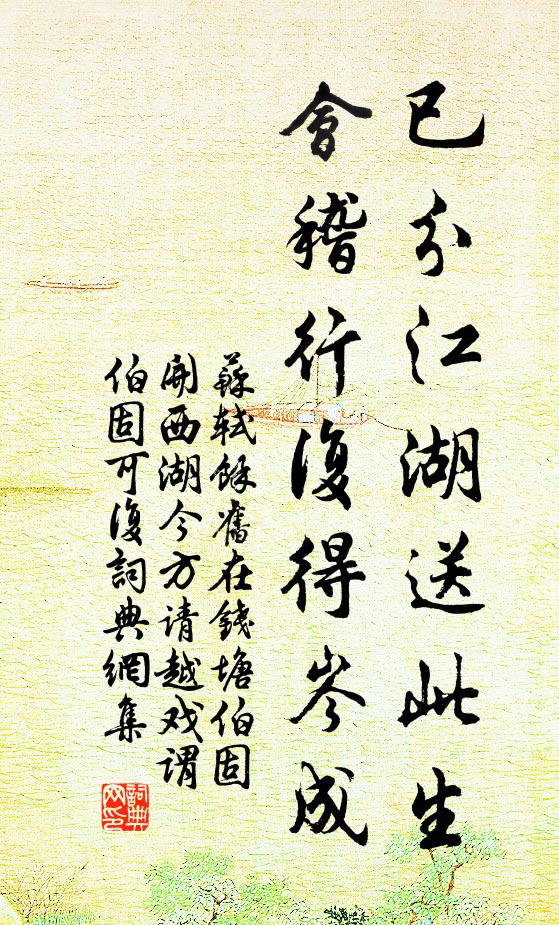 已分江湖送此生
會稽行復得岑成
蘇軾餘舊在錢塘伯固
開西湖今方请越戏谓
伯固可復詞典網集
詞典
网印